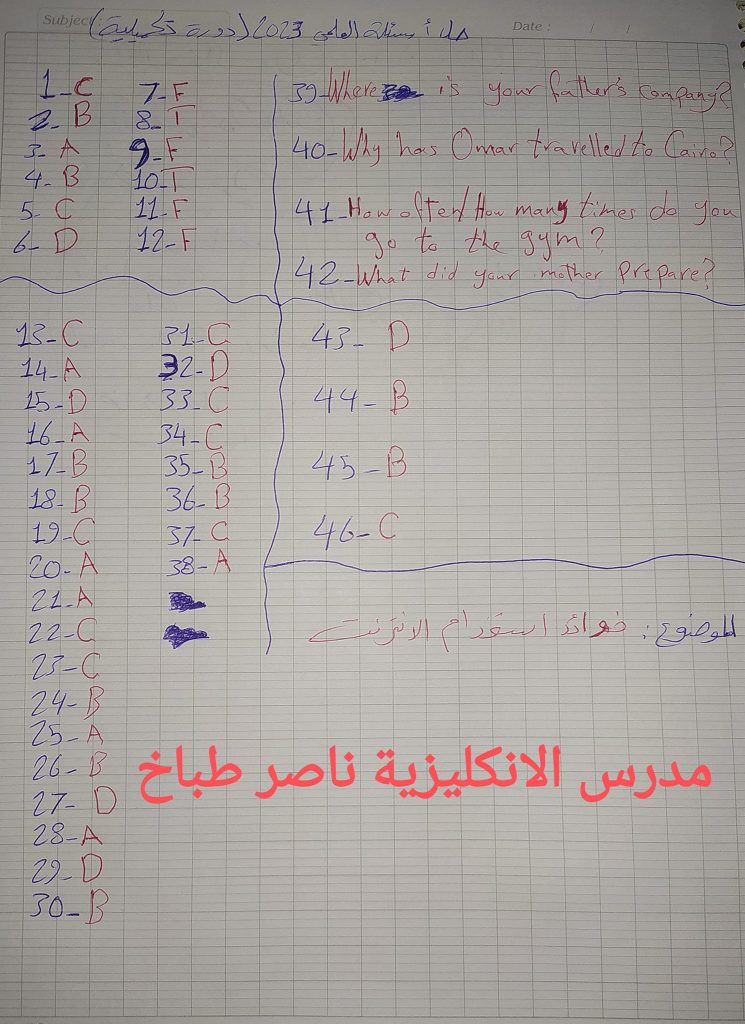 Subject:
Date : / /
حل أسئلة العلمي 2023 (دورة تكميلية)
1_C
2_B
3_A
4_B
5_C
6_D
7_F
8_T
9_F
10_T
11_F
12_F
39_Where is your father's company?
40_Why has Omar travelled to Cairo?
41_How often/How many times do you
go to the gym?
42_What did your mother prepare?
13_C
14_A
15_D
16_A
17_B
18_B
19_C
20_A
21_A
22_C
23_C
24_B
25_A
26_B
27_D
28_A
29_D
30_B
31_C
32_D
33_C
34_C
35_B
36_B
37_C
38_A
43_D
44_B
45_B
46_C
الموضوع: فوائد استخدام الانترنت
مدرس الانكليزية ناصر طباخ